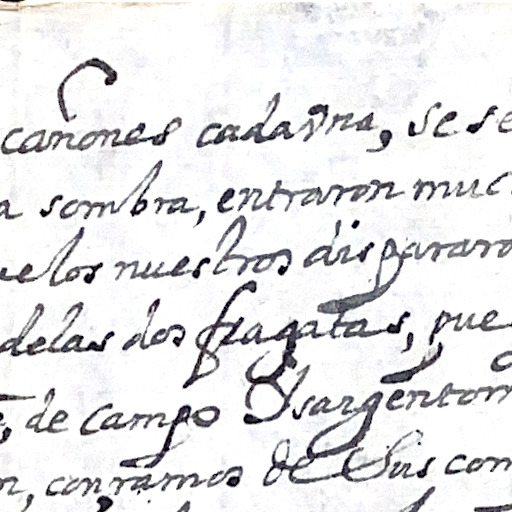 cañones cada vna, se se
a sombra, entraron muc
ue los nuestros dispararo
delas dos fragatas, que
de campo Ysargentom
n, con ramos de Sus com